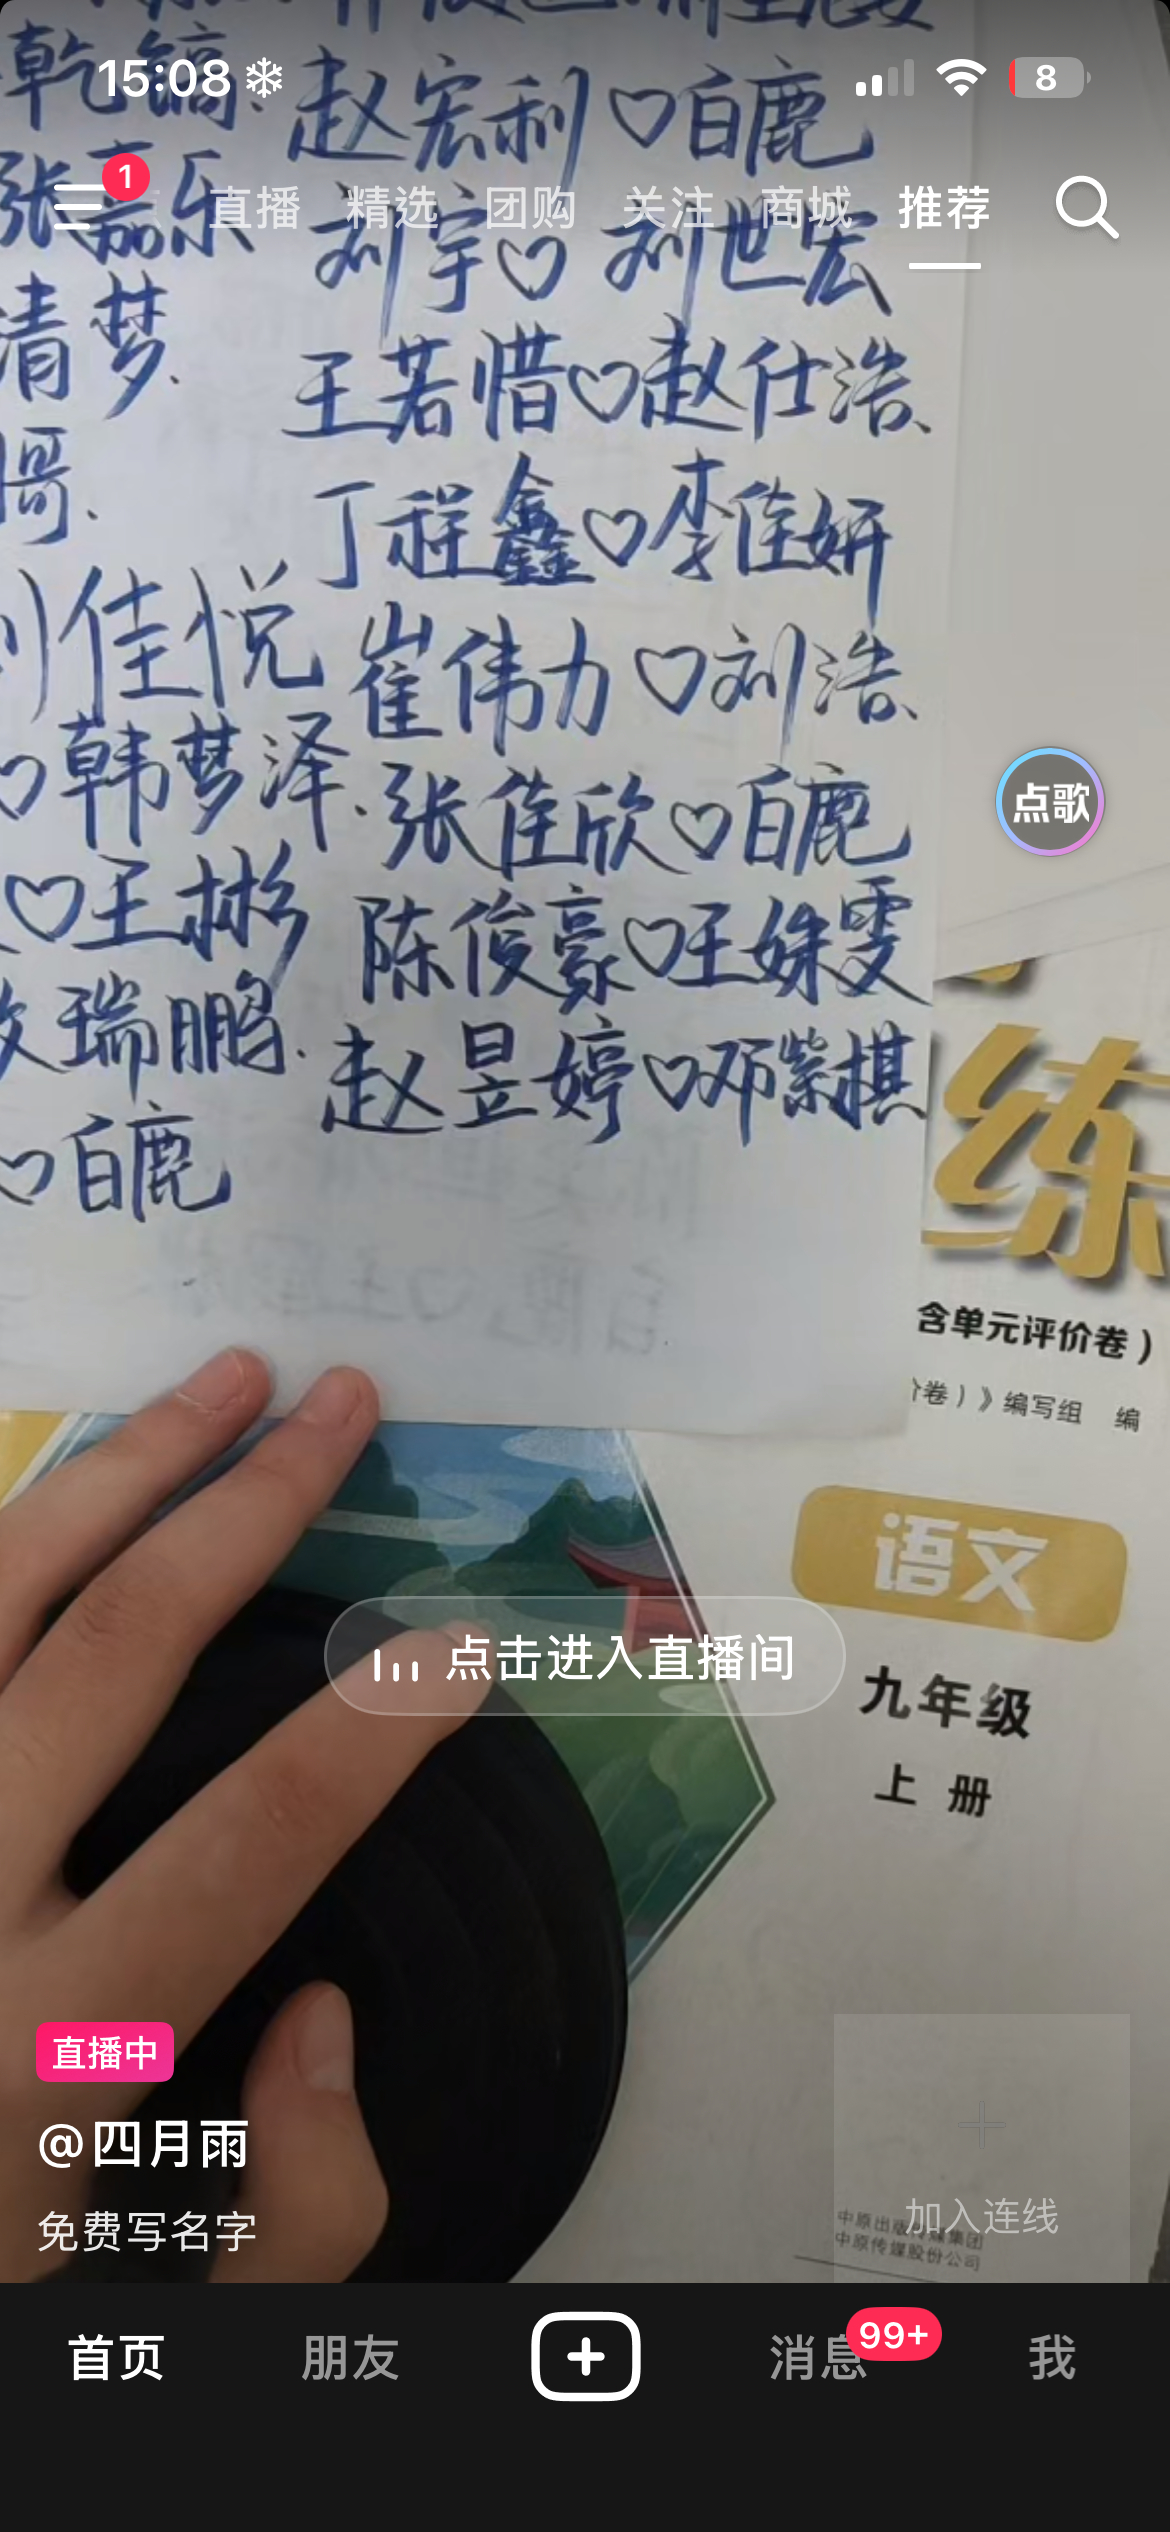 15:08
8
1
直播 精选 团购 关注 商城 推荐
乾镐.
张嘉乐
清梦.
哥.
刘佳悦
♡韩梦泽.
♡王彬
瑞鹏.
♡白鹿
赵宏利♡白鹿
刘宇♡刘世宏
王若惜♡赵仕浩、
丁程鑫♡李佳妍
崔伟力♡刘浩、
张佳欣♡白鹿
陈俊豪♡王姝雯
赵昱婷♡邓紫棋
点歌
练
含单元评价卷）
价卷）》编写组 编
语文
九年级
上 册
点击进入直播间
直播中
@四月雨
免费写名字
加入连线
中原出版传媒集团
中原传媒股份公司
首页 朋友 消息 99+ 我